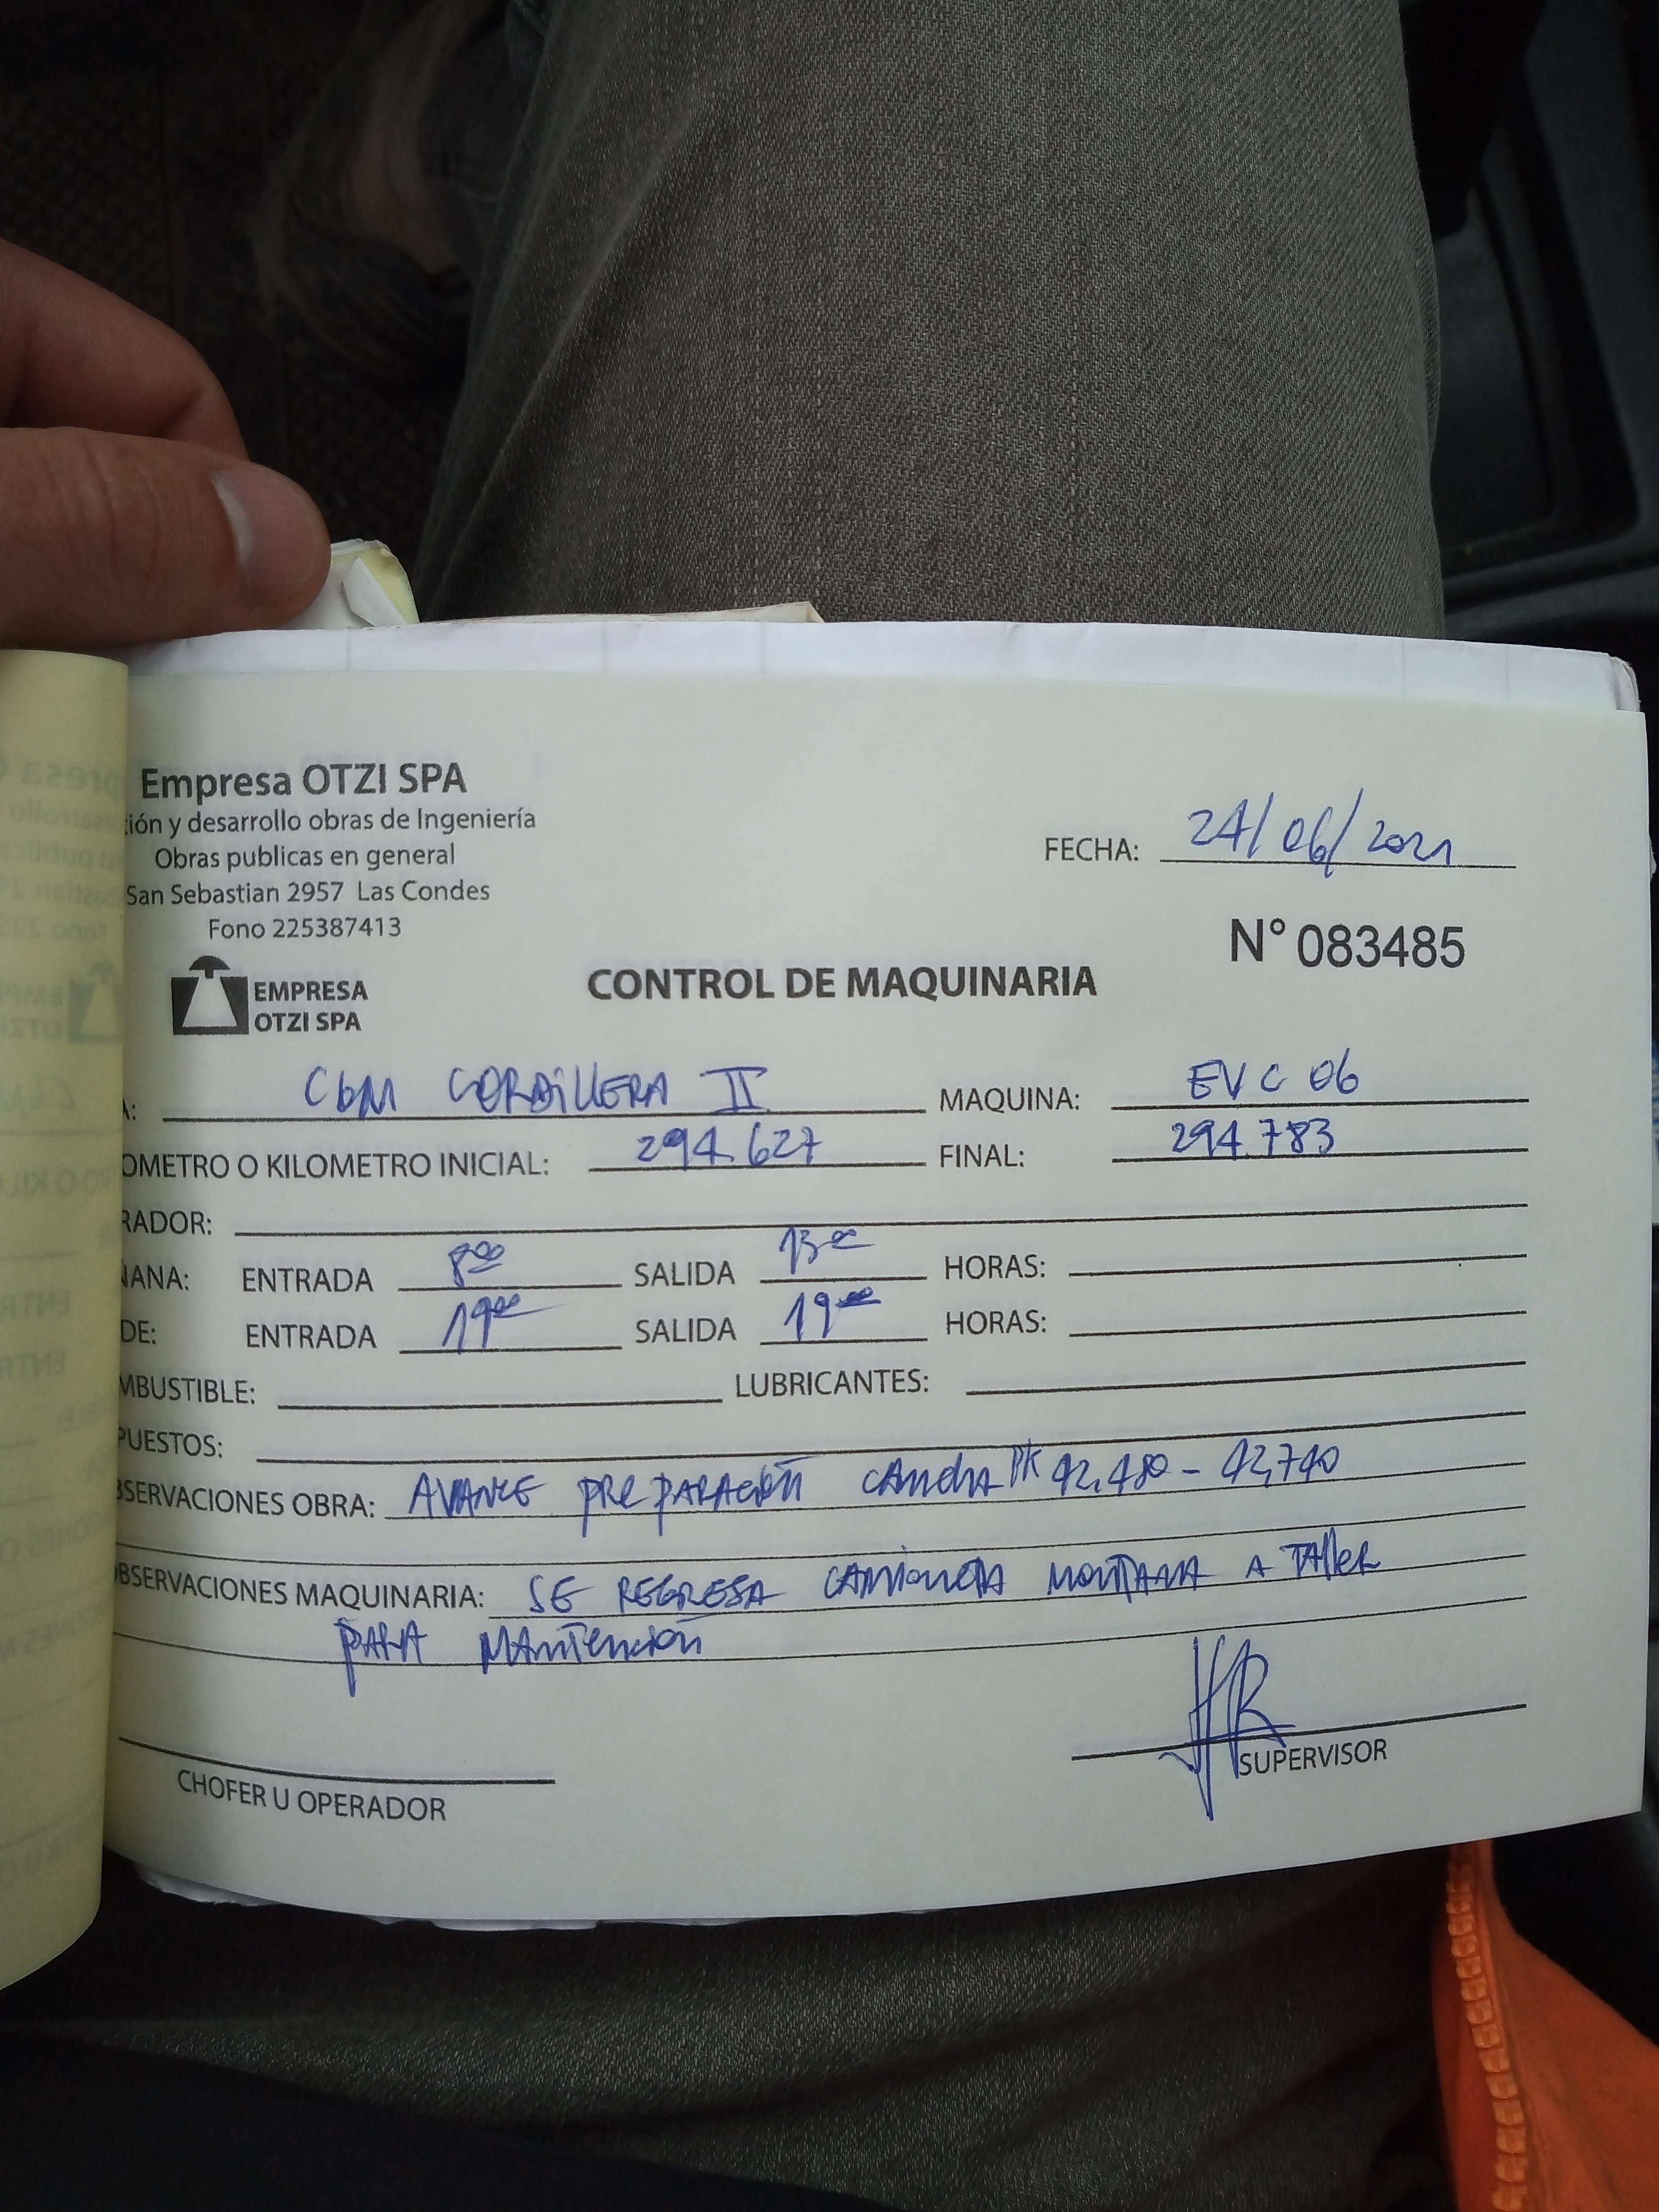 Empresa OTZI SPA
ión y desarrollo obras de Ingeniería
Obras publicas en general
San Sebastian 2957 Las Condes
Fono 225387413
EMPRESA
OTZI SPA
FECHA: 24/06/2021
N° 083485
CONTROL DE MAQUINARIA
A: CGM CORDILLERA II MAQUINA: EVC 06
OMETRO O KILOMETRO INICIAL: 294.627 FINAL: 294.783
RADOR:
ÑANA: ENTRADA 800 SALIDA 13 HORAS:
DE: ENTRADA SALIDA 19 HORAS:
MBUSTIBLE: LUBRICANTES:
PUESTOS:
BSERVACIONES OBRA: AVANCE PREPARACIÓN CANCHA PK 42.480 - 42,740
OBSERVACIONES MAQUINARIA: SE REGRESA CAMIONETA MONTANA A TALLER
PARA MANTENCION
CHOFER U OPERADOR
SUPERVISOR